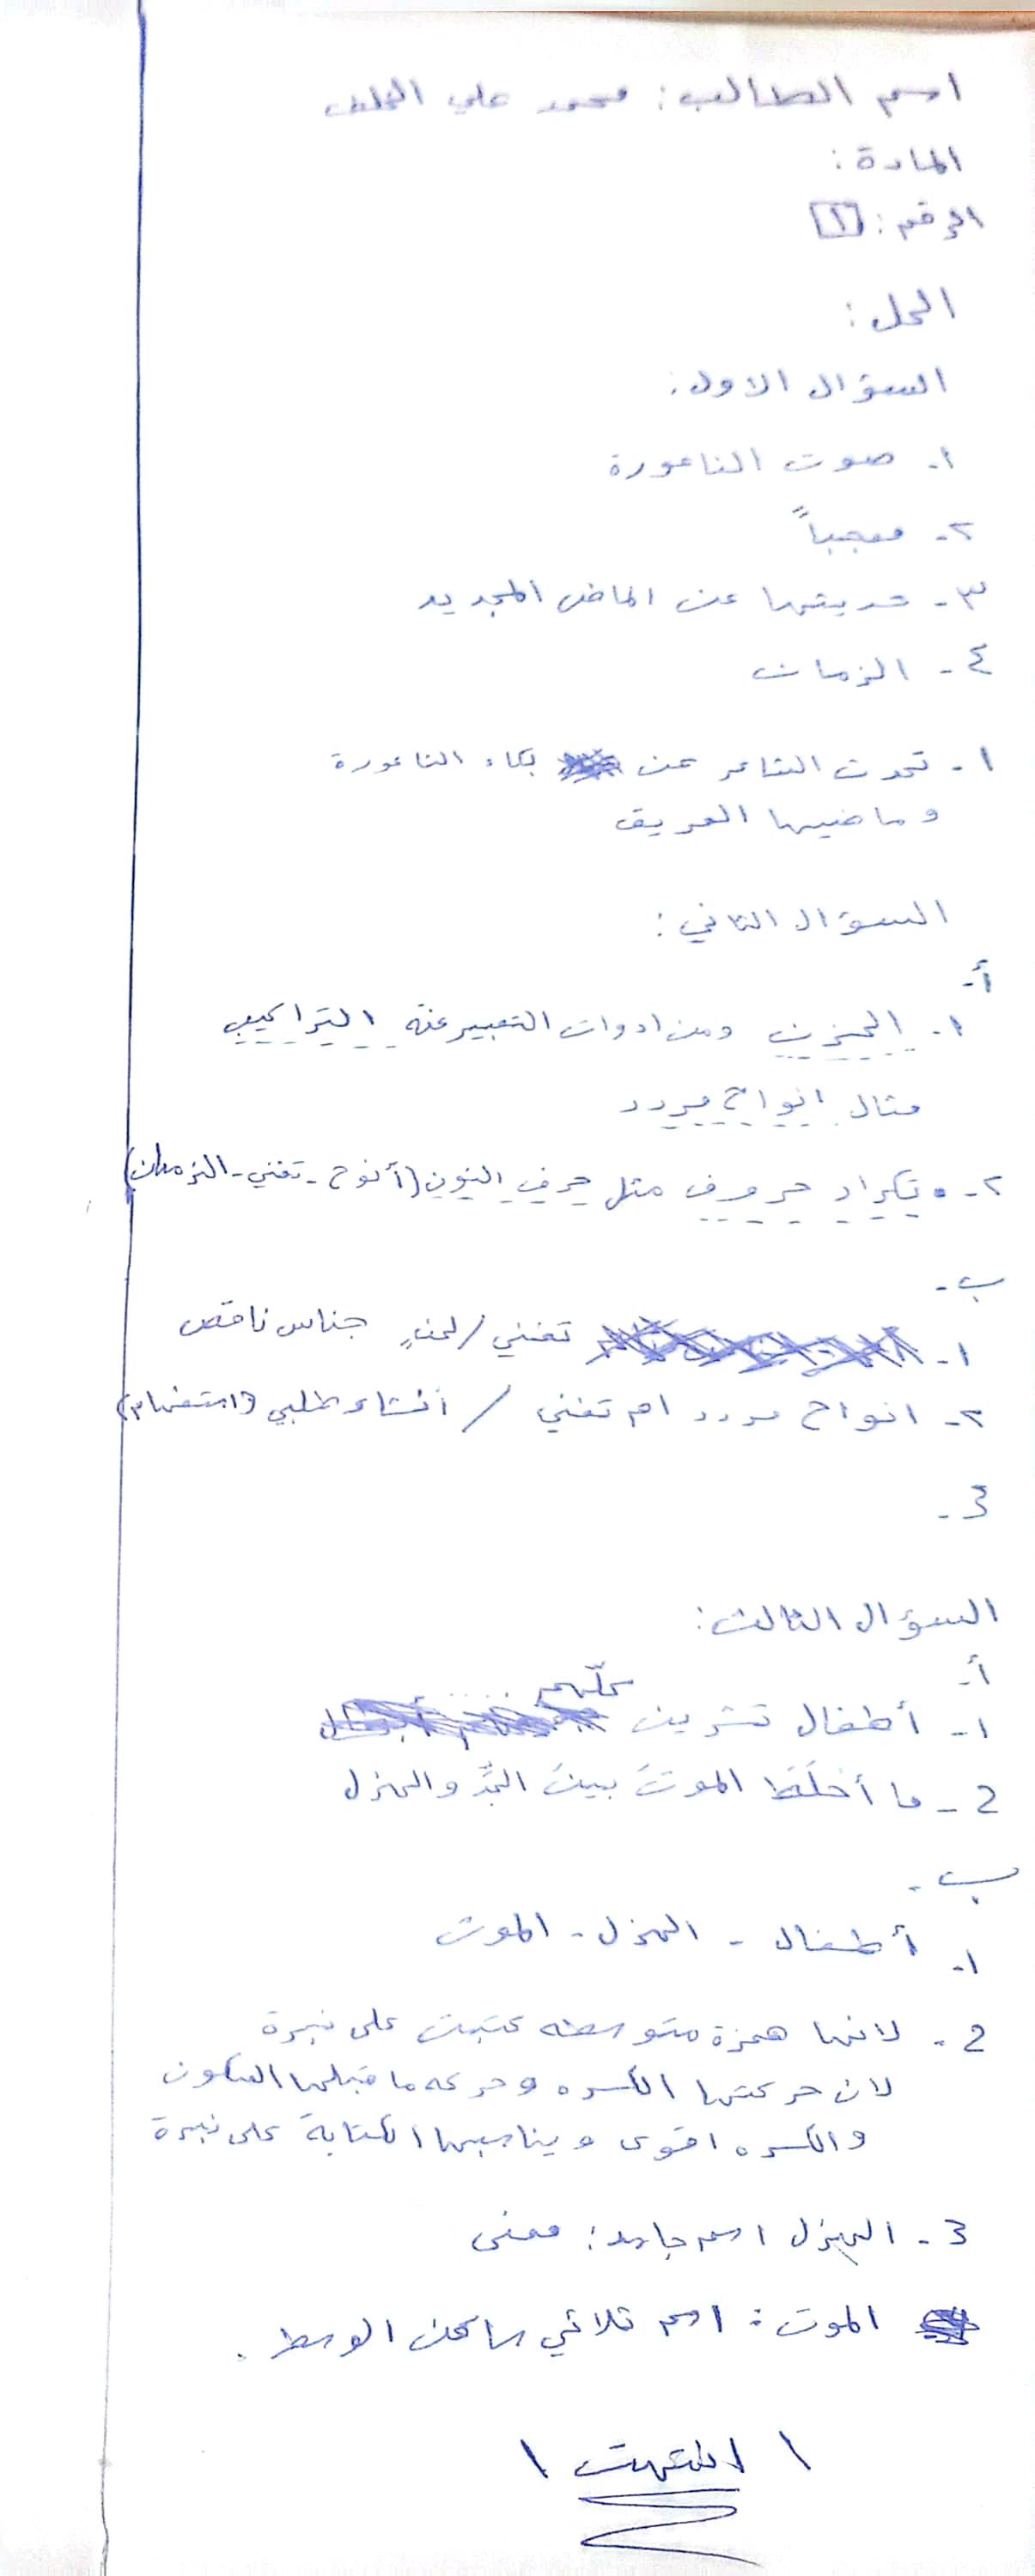 اسم الطالب: محمد علي الخلف
المادة:
الرقم: ١
الحل:
السؤال الاول:
١- صوت الناعورة
٢- معجباً
٣- حديثها عن الماض المجديد
٤- الزمان
١- تحدث الشاعر عن بكاء الناعورة
وماضيها العريق
السؤال الثاني:
أ-
١- الحزن ومن ادوات التعبير عنه التراكيب
مثال انواح مردد
٢- تكرار حروف مثل حرف النون (أنوح - تغني - الزمان)
ب-
١- تغني / لحنٍ جناس ناقص
٢- انواح مردد ام تغني / أنشاء طلبي (استفهام)
3-
السؤال الثالث:
أ-
١- أطفال تشرين كلّهم
2- ما أخلَطَ الموتَ بينَ الجدِّ والهزل
ب-
١- أطفال - الهزل - الموت
2- لانها همزة متوسطه كتبت على نبرة
لان حركتها الكسره وحركه ما قبلها السكون
والكسره اقوى ويناسبها الكتابة على نبرة
3- الهزل اسم جامد: معنى
الموت: اسم ثلاثي ساكن الوسط.
\ انتهت \